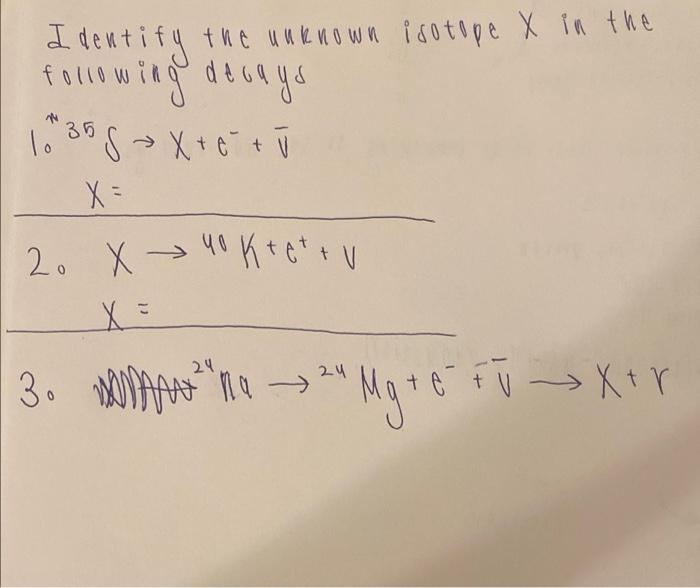 Identify the unknown isotope X in the
following decays
1. ³⁵S → X + e⁻ + ν̄
X =
2. X → ⁴⁰K + e⁺ + ν
X =
3. ²⁴na → ²⁴Mg + e⁻ + ν̄ → X + r